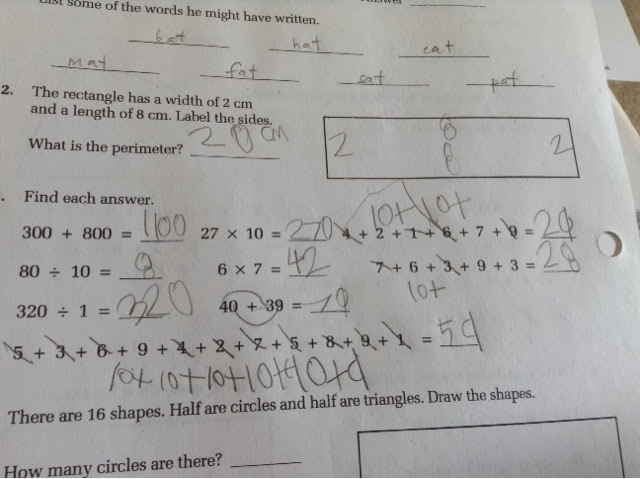 List some of the words he might have written.
bat hat cat
mat fat sat pat
2. The rectangle has a width of 2 cm
and a length of 8 cm. Label the sides.
What is the perimeter? 20 cm
2 8 8 2
. Find each answer.
10+10+
300 + 800 = 1100 27 × 10 = 270 4 + 2 + 1 + 6 + 7 + 9 = 29
80 ÷ 10 = 8 6 × 7 = 42 7 + 6 + 3 + 9 + 3 = 28
10+
320 ÷ 1 = 320 40 + 39 = 79
5 + 3 + 6 + 9 + 4 + 2 + 7 + 5 + 8 + 9 + 1 = 59
10+10+10+10+10+9
There are 16 shapes. Half are circles and half are triangles. Draw the shapes.
How many circles are there?